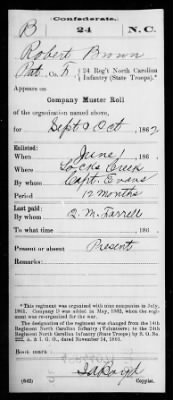 Confederate.
B 24 N.C.
Robert Brown
Pvt, Co. F, 24 Reg't North Carolina
Infantry (State Troops).*
Appears on
Company Muster Roll
of the organization named above,
for Sept & Oct, 1862
Enlisted:
When June 1, 186
Where Locks Creek
By whom Capt. Evans
Period 12 months
Last paid:
By whom Q. M. Farrell
To what time , 186
Present or absent Present
Remarks:
*This regiment was organized with nine companies in July,
1861. Company D was added in May, 1862, when the regi-
ment was re-organized for the war.
The designation of the regiment was changed from the 14th
Regiment North Carolina Infantry (Volunteers) to the 24th
Regiment North Carolina Infantry (State Troops) by S. O. No.
222, A. & I. G. O., dated November 14, 1861.
Book mark:
(642) Copyist.